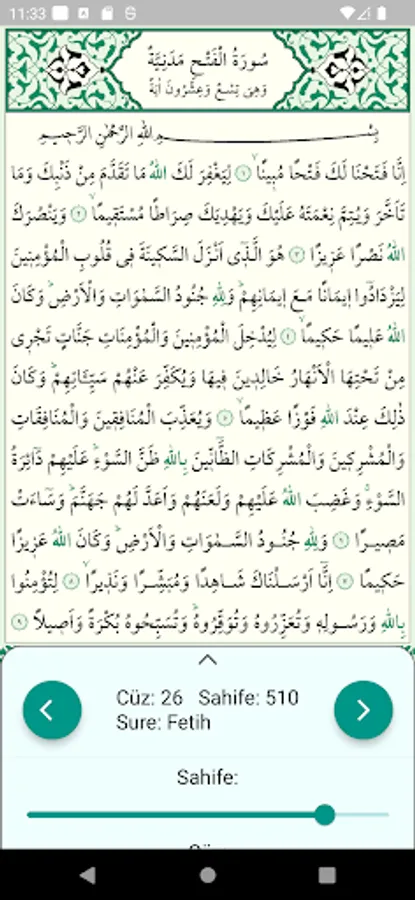 11:33
سُورَةُ الْفَتْحِ مَدَنِيَّةٌ
وَهِيَ تِسْعٌ وَعِشْرُونَ اٰيَةً
بِسْمِ اللّٰهِ الرَّحْمٰنِ الرَّح۪يمِ
اِنَّا فَتَحْنَا لَكَ فَتْحًا مُب۪ينًاۙ ﴿١﴾ لِيَغْفِرَ لَكَ اللّٰهُ مَا تَقَدَّمَ مِنْ ذَنْبِكَ وَمَا
تَاَخَّرَ وَيُتِمَّ نِعْمَتَهُ عَلَيْكَ وَيَهْدِيَكَ صِرَاطًا مُسْتَق۪يمًاۙ ﴿٢﴾ وَيَنْصُرَكَ
اللّٰهُ نَصْرًا عَز۪يزًا ﴿٣﴾ هُوَ الَّذ۪ٓي اَنْزَلَ السَّك۪ينَةَ ف۪ي قُلُوبِ الْمُؤْمِن۪ينَ
لِيَزْدَادُٓوا ا۪يمَانًا مَعَ ا۪يمَانِهِمْۜ وَلِلّٰهِ جُنُودُ السَّمٰوَاتِ وَالْاَرْضِۜ وَكَانَ
اللّٰهُ عَل۪يمًا حَك۪يمًاۙ ﴿٤﴾ لِيُدْخِلَ الْمُؤْمِن۪ينَ وَالْمُؤْمِنَاتِ جَنَّاتٍ تَجْر۪ي
مِنْ تَحْتِهَا الْاَنْهَارُ خَالِد۪ينَ ف۪يهَا وَيُكَفِّرَ عَنْهُمْ سَيِّـَٔاتِهِمْۜ وَكَانَ
ذٰلِكَ عِنْدَ اللّٰهِ فَوْزًا عَظ۪يمًاۙ ﴿٥﴾ وَيُعَذِّبَ الْمُنَافِق۪ينَ وَالْمُنَافِقَاتِ
وَالْمُشْرِك۪ينَ وَالْمُشْرِكَاتِ الظَّٓانّ۪ينَ بِاللّٰهِ ظَنَّ السَّوْءِۜ عَلَيْهِمْ دَٓائِرَةُ
السَّوْءِۚ وَغَضِبَ اللّٰهُ عَلَيْهِمْ وَلَعَنَهُمْ وَاَعَدَّ لَهُمْ جَهَنَّمَۜ وَسَٓاءَتْ
مَص۪يرًا ﴿٦﴾ وَلِلّٰهِ جُنُودُ السَّمٰوَاتِ وَالْاَرْضِۜ وَكَانَ اللّٰهُ عَز۪يزًا
حَك۪يمًا ﴿٧﴾ اِنَّٓا اَرْسَلْنَاكَ شَاهِدًا وَمُبَشِّرًا وَنَذ۪يرًاۙ ﴿٨﴾ لِتُؤْمِنُوا
بِاللّٰهِ وَرَسُولِه۪ وَتُعَزِّرُوهُ وَتُوَقِّرُوهُۜ وَتُسَبِّحُوهُ بُكْرَةً وَاَص۪يلًا ﴿٩﴾
Cüz: 26 Sahife: 510
Sure: Fetih
Sahife: